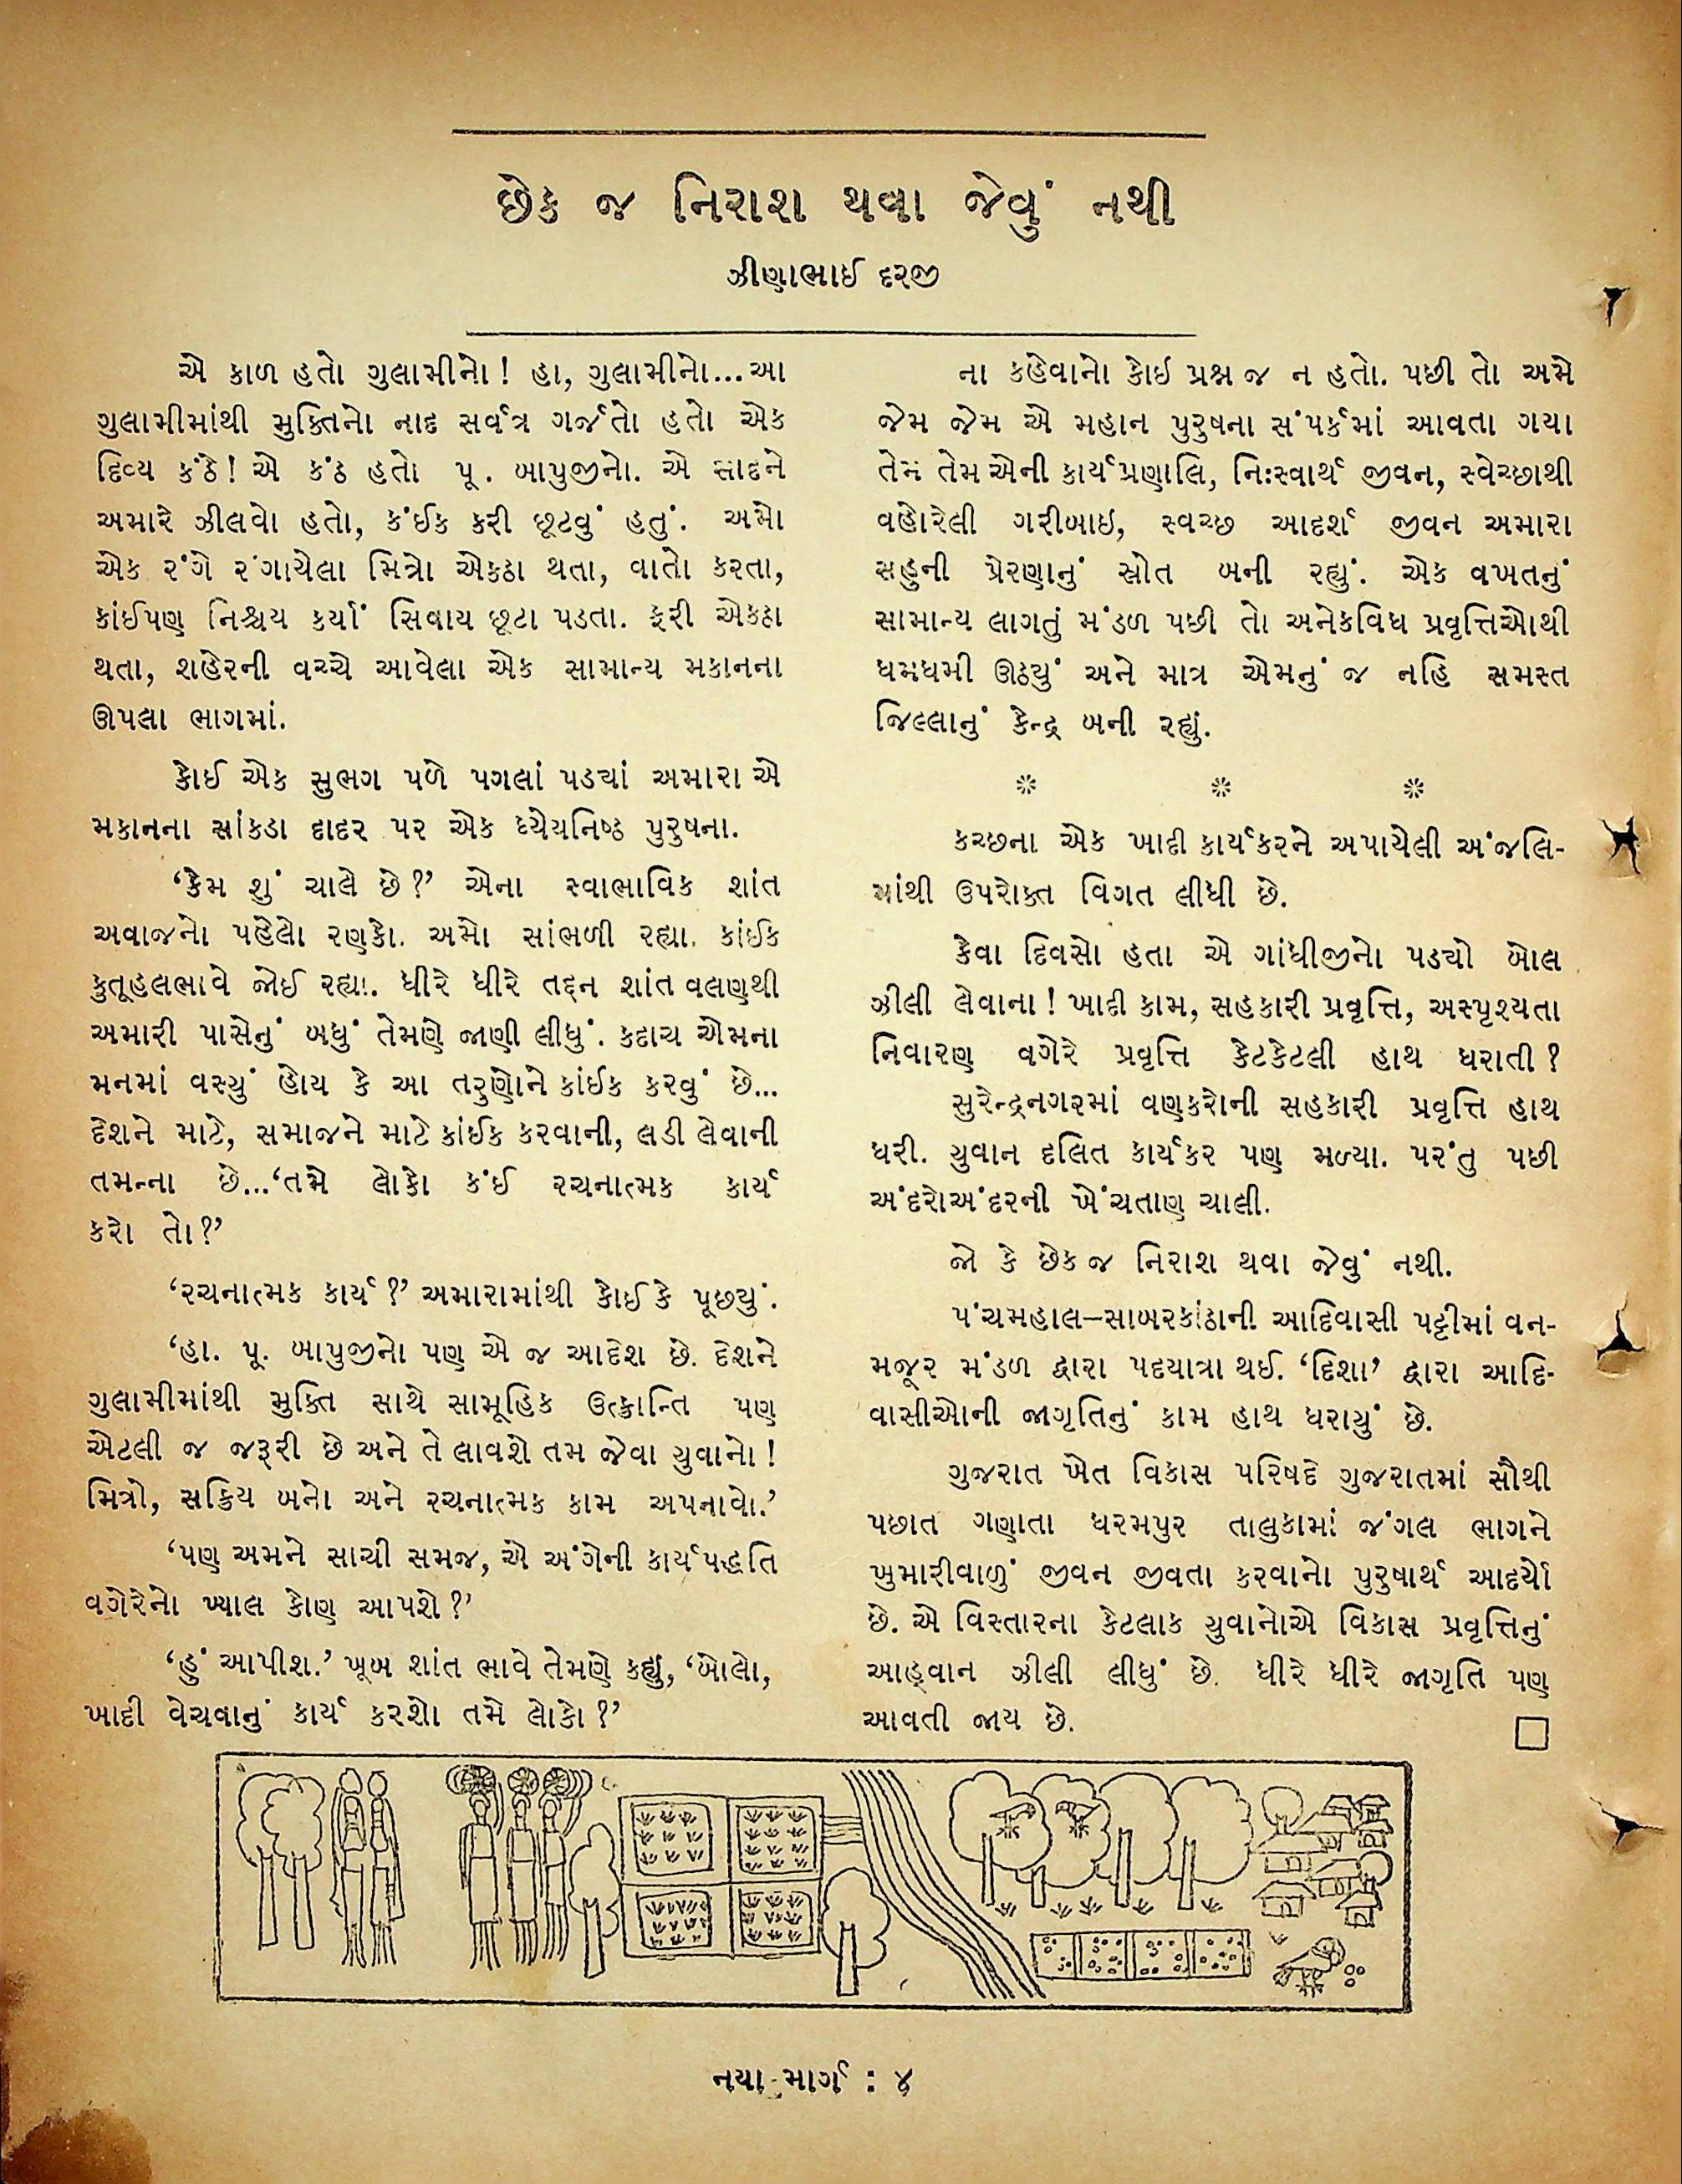 છેક જ નિરાશ થવા જેવું નથી
ઝીણાભાઈ દરજી
એ કાળ હતો ગુલામીનો! હા, ગુલામીનો...આ
ગુલામીમાંથી મુક્તિનો નાદ સર્વત્ર ગર્જતો હતો એક
દિવ્ય કંઠે! એ કંઠ હતો પૂ. બાપુજીનો. એ સાદને
અમારે ઝીલવો હતો, કંઈક કરી છૂટવું હતું. અમો
એક રંગે રંગાયેલા મિત્રો એકઠા થતા, વાતો કરતા,
કાંઈપણ નિશ્ચય કર્યા સિવાય છૂટા પડતા. ફરી એકઠા
થતા, શહેરની વચ્ચે આવેલા એક સામાન્ય મકાનના
ઊપલા ભાગમાં.
કોઈ એક સુભગ પળે પગલાં પડ્યાં અમારા એ
મકાનના સાંકડા દાદર પર એક ધ્યેયનિષ્ઠ પુરુષના.
‘કેમ શું ચાલે છે?’ એના સ્વાભાવિક શાંત
અવાજનો પહેલો રણકો. અમો સાંભળી રહ્યા. કાંઈક
કુતૂહલભાવે જોઈ રહ્યા. ધીરે ધીરે તદ્દન શાંત વલણથી
અમારી પાસેનું બધું તેમણે જાણી લીધું. કદાચ એમના
મનમાં વસ્યું હોય કે આ તરુણોને કાંઈક કરવું છે...
દેશને માટે, સમાજને માટે કાંઈક કરવાની, લડી લેવાની
તમન્ના છે...‘તમે લોકો કંઈ રચનાત્મક કાર્ય
કરો તો?’
‘રચનાત્મક કાર્ય?’ અમારામાંથી કોઈકે પૂછયું.
‘હા. પૂ. બાપુજીનો પણ એ જ આદેશ છે. દેશને
ગુલામીમાંથી મુક્તિ સાથે સામૂહિક ઉત્ક્રાન્તિ પણ
એટલી જ જરૂરી છે અને તે લાવશે તમ જેવા યુવાનો!
મિત્રો, સક્રિય બનો અને રચનાત્મક કામ અપનાવો.’
‘પણ અમને સાચી સમજ, એ અંગેની કાર્યપદ્ધતિ
વગેરેનો ખ્યાલ કોણ આપશે?’
‘હું આપીશ.’ ખૂબ શાંત ભાવે તેમણે કહ્યું, ‘બોલો,
ખાદી વેચવાનું કાર્ય કરશો તમે લોકો?’
ના કહેવાનો કોઈ પ્રશ્ન જ ન હતો. પછી તો અમે
જેમ જેમ એ મહાન પુરુષના સંપર્કમાં આવતા ગયા
તેમ તેમ એની કાર્યપ્રણાલિ, નિઃસ્વાર્થ જીવન, સ્વેચ્છાથી
વહોરેલી ગરીબાઇ, સ્વચ્છ આદર્શ જીવન અમારા
સહુની પ્રેરણાનું સ્રોત બની રહ્યું. એક વખતનું
સામાન્ય લાગતું મંડળ પછી તો અનેકવિધ પ્રવૃત્તિઓથી
ધમધમી ઊઠયું અને માત્ર એમનું જ નહિ સમસ્ત
જિલ્લાનું કેન્દ્ર બની રહ્યું.
* * *
કચ્છના એક ખાદી કાર્યકરને અપાયેલી અંજલિ-
માંથી ઉપરોક્ત વિગત લીધી છે.
કેવા દિવસો હતા એ ગાંધીજીનો પડ્યો બોલ
ઝીલી લેવાના! ખાદી કામ, સહકારી પ્રવૃત્તિ, અસ્પૃશ્યતા
નિવારણ વગેરે પ્રવૃત્તિ કેટકેટલી હાથ ધરાતી?
સુરેન્દ્રનગરમાં વણકરોની સહકારી પ્રવૃત્તિ હાથ
ધરી. યુવાન દલિત કાર્યકર પણ મળ્યા. પરંતુ પછી
અંદરોઅંદરની ખેંચતાણ ચાલી.
જો કે છેક જ નિરાશ થવા જેવું નથી.
પંચમહાલ–સાબરકાંઠાની આદિવાસી પટ્ટીમાં વન-
મજૂર મંડળ દ્વારા પદયાત્રા થઈ. ‘દિશા’ દ્વારા આદિ-
વાસીઓની જાગૃતિનું કામ હાથ ધરાયું છે.
ગુજરાત ખેત વિકાસ પરિષદે ગુજરાતમાં સૌથી
પછાત ગણાતા ધરમપુર તાલુકામાં જંગલ ભાગને
ખુમારીવાળું જીવન જીવતા કરવાનો પુરુષાર્થ આદર્યો
છે. એ વિસ્તારના કેટલાક યુવાનોએ વિકાસ પ્રવૃત્તિનું
આહ્વાન ઝીલી લીધું છે. ધીરે ધીરે જાગૃતિ પણ
આવતી જાય છે.
નયા માર્ગ : ૪